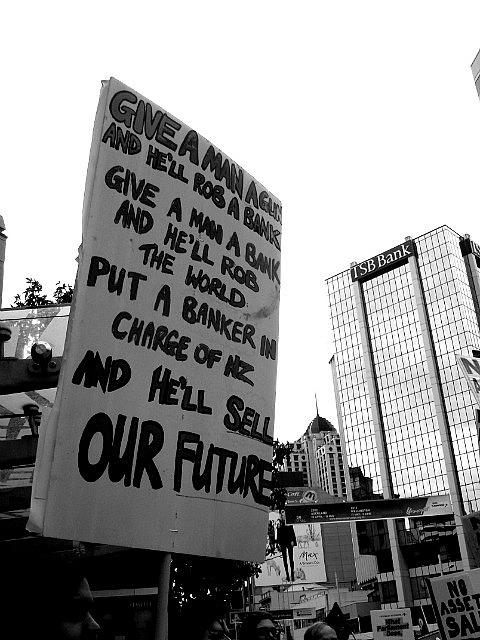 GIVE A MAN A GUN
AND HE'LL ROB A BANK
GIVE A MAN A BANK
AND HE'LL ROB
THE WORLD.
PUT A BANKER IN
CHARGE OF NZ
AND HE'LL SELL
OUR FUTURE
TSB Bank
Max
NO
ASSET
SAL